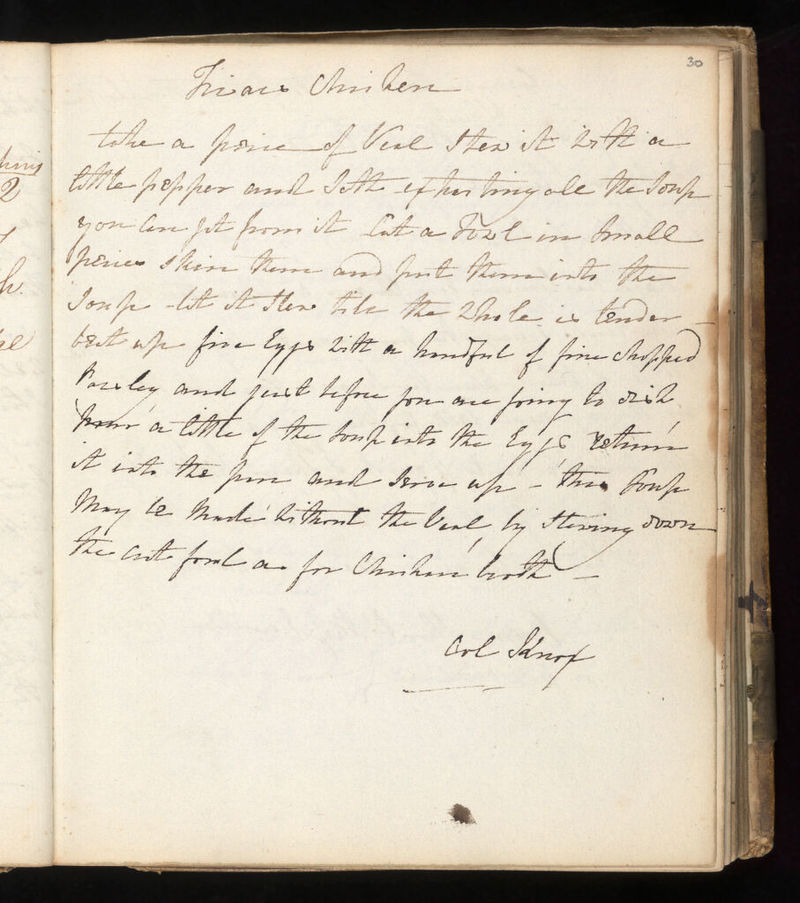 30
Friars Chicken
take a piece of Veal Stew it with a
little pepper and Salt extracting all the Soup
you Can get from it Cut a Fowl in Small
pieces Skin them and put them into the
Soup - let it Stew till the Whole is tender -
beat up five Eggs with a handful of fine chopped
Parsley and just before you are going to dish
a little of the Soup into the Eggs return
it into the pan and Serve up - this Soup
May be Made without the Veal, by Stewing down
the cut fowl as for Chicken broth -
Col Knox
2
h.